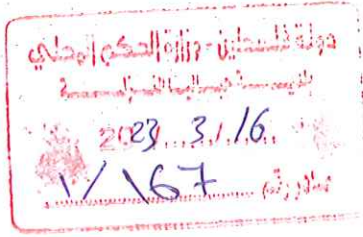 دولة فلسطين - وزارة الحكم المحلي
2023/3/16
صادر رقم 1/167